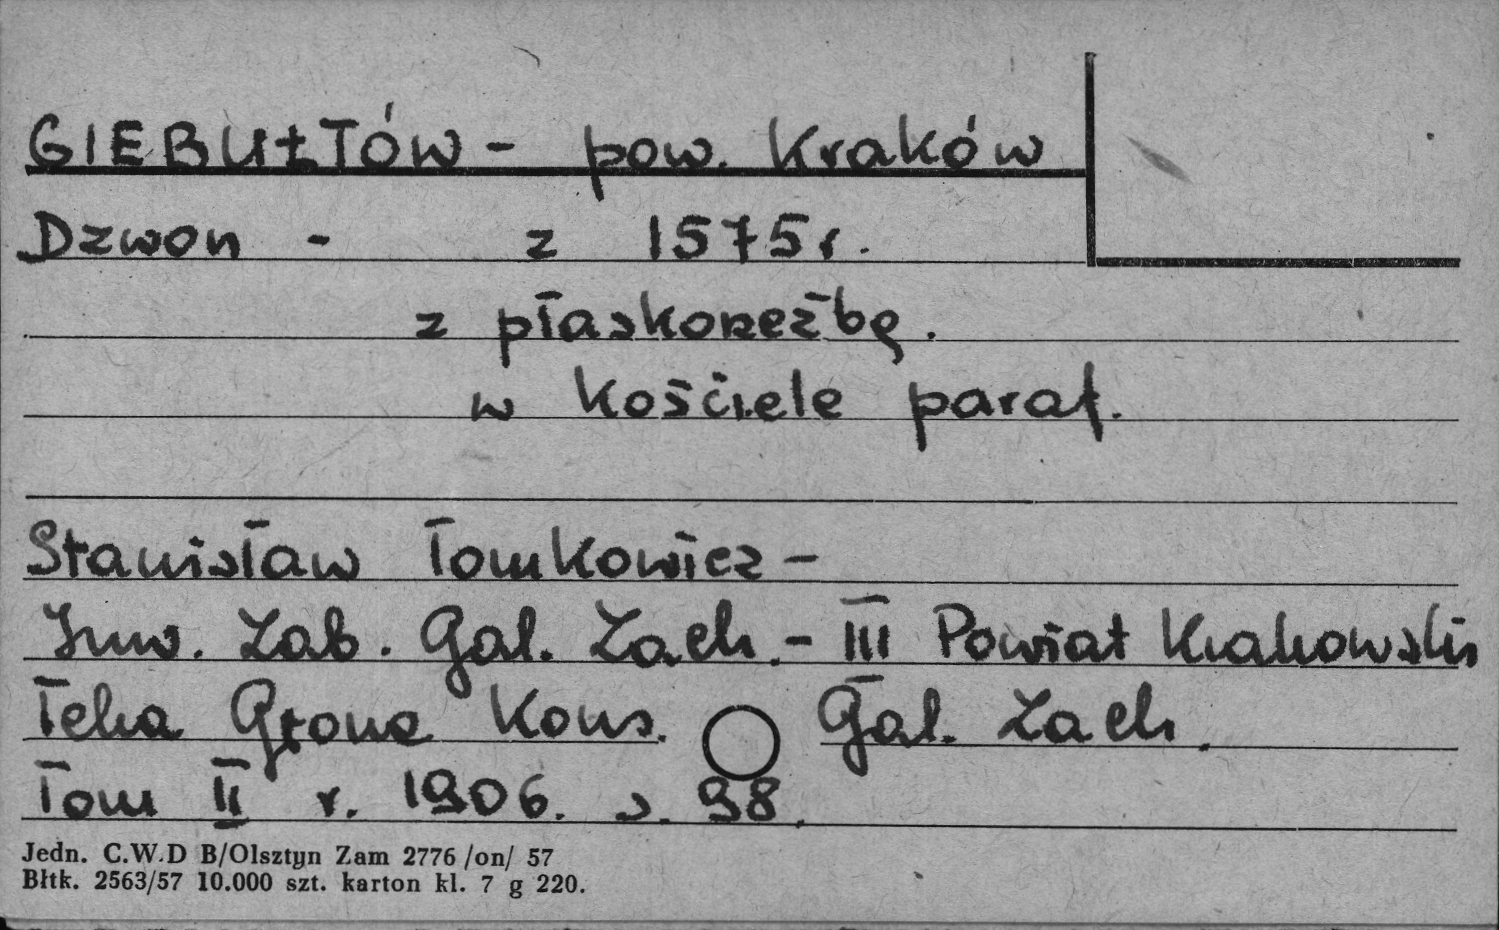 GIEBUŁTÓW - pow. Kraków
Dzwon - z 1575 r.
z płaskorzeźbą.
w kościele paraf.
Stanisław Tomkowicz -
Inw. Zab. Gal. Zach. - III Powiat Krakowski
Teka Grona Kons. Gal. Zach.
Tom II r. 1906. s. 98.
Jedn. C.W.D B/Olsztyn Zam 2776 /on/ 57
Błtk. 2563/57 10.000 szt. karton kl. 7 g 220.